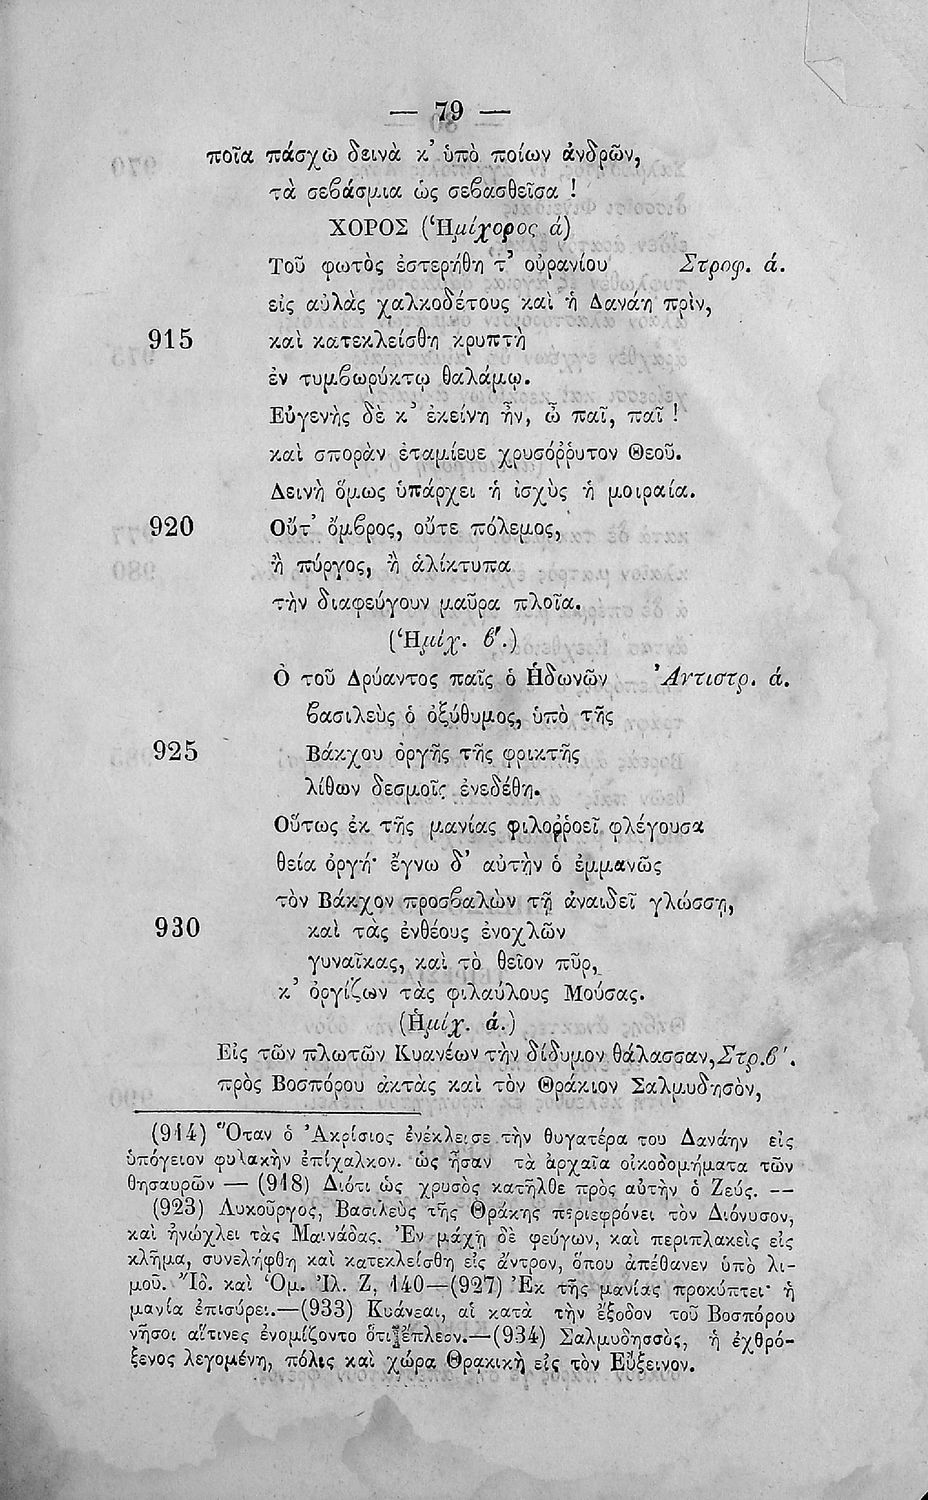 — 79 —
ποῖα πάσχω δεινὰ κ’ ὑπὸ ποίων ἀνδρῶν,
τὰ σεβάσμια ὡς σεβασθεῖσα !
ΧΟΡΟΣ (Ἡμίχορος ά)
Τοῦ φωτὸς ἐστερήθη τ’ οὐρανίου Στροφ. ά.
εἰς αὐλὰς χαλκοδέτους καὶ ἡ Δανάη πρὶν,
915 καὶ κατεκλείσθη κρυπτὴ
ἐν τυμβωρύκτῳ θαλάμῳ.
Εὐγενὴς δὲ κ’ ἐκείνη ἦν, ὦ παῖ, παῖ !
καὶ σπορὰν ἐταμίευε χρυσόῤῥυτον Θεοῦ.
Δεινὴ ὅμως ὑπάρχει ἡ ἰσχὺς ἡ μοιραία.
920 Οὔτ’ ὄμβρος, οὔτε πόλεμος,
ἢ πύργος, ἢ ἁλίκτυπα
τὴν διαφεύγουν μαῦρα πλοῖα.
(Ἡμίχ. β΄.)
Ὁ τοῦ Δρύαντος παῖς ὁ Ἠδωνῶν Ἀντιστρ. ά.
βασιλεὺς ὁ ὀξύθυμος, ὑπὸ τῆς
925 Βάκχου ὀργῆς τῆς φρικτῆς
λίθων δεσμοῖς ἐνεδέθη.
Οὕτως ἐκ τῆς μανίας φιλοῤῥοεῖ φλέγουσα
θεία ὀργή· ἔγνω δ’ αὐτὴν ὁ ἐμμανῶς
τὸν Βάκχον προσβαλὼν τῇ ἀναιδεῖ γλώσσῃ,
930 καὶ τὰς ἐνθέους ἐνοχλῶν
γυναῖκας, καὶ τὸ θεῖον πῦρ,
κ’ ὀργίζων τὰς φιλαύλους Μούσας.
(Ἡμίχ. ά.)
Εἰς τῶν πλωτῶν Κυανέων τὴν δίδυμον θάλασσαν, Στρ. β΄.
πρὸς Βοσπόρου ἀκτὰς καὶ τὸν Θράκιον Σαλμυδησὸν,
(914) Ὅταν ὁ Ἀκρίσιος ἐνέκλεισε τὴν θυγατέρα του Δανάην εἰς
ὑπόγειον φυλακὴν ἐπίχαλκον. ὡς ἦσαν τὰ ἀρχαῖα οἰκοδομήματα τῶν
θησαυρῶν — (918) Διότι ὡς χρυσὸς κατῆλθε πρὸς αὐτὴν ὁ Ζεύς. —
(923) Λυκοῦργος, Βασιλεὺς τῆς Θράκης περιεφρόνει τὸν Διόνυσον,
καὶ ἠνώχλει τὰς Μαινάδας. Ἐν μάχῃ δὲ φεύγων, καὶ περιπλακεὶς εἰς
κλῆμα, συνελήφθη καὶ κατεκλείσθη εἰς ἄντρον, ὅπου ἀπέθανεν ὑπὸ λι-
μοῦ. Ἴδ. καὶ Ὁμ. Ἰλ. Ζ, 140—(927) Ἐκ τῆς μανίας προκύπτει· ἡ
μανία ἐπισύρει.—(933) Κυάνεαι, αἱ κατὰ τὴν ἔξοδον τοῦ Βοσπόρου
νῆσοι αἵτινες ἐνομίζοντο ὅτι ἔπλεον.—(934) Σαλμυδησσὸς, ἡ ἐχθρό-
ξενος λεγομένη, πόλις καὶ χώρα Θρακικὴ εἰς τὸν Εὔξεινον.